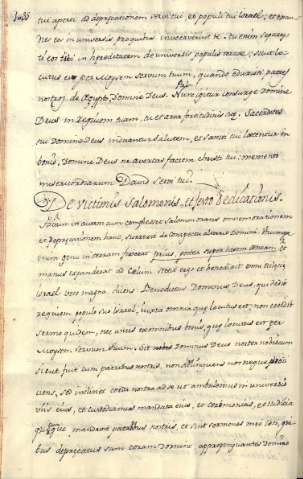 tui aperti ad deprecationem servi tui, et populi tui Israel, et exau
dies eos in universis pro quibus invocaverint te. tu enim segregasti
eos tibi in hereditatem de universis populis terrae, sicut lo
cutus es per Moysen servum tuum, quando eduxisti patres
nostros de Egypto, Domine Deus. Nunc igitur consurge Domine
Deus in requiem tuam, tu et arca fortitudinis tuae. Sacerdotes
tui Domine Deus induantur salutem, et sancti tui laetentur in
bonis, Domine Deus ne averseris faciem Christi tui: memento
misericordiarum David servi tui.
De victimis Salomonis, et festo dedicationis.
Factum est autem cum complesset Salomon orans
et deprecationem hanc, surrexit de conspectu altaris Domini
manus expanderat ad coelum. Stetit ergo et benedixit omni ecclesiae
Israel voce magna dicens. Benedictus Dominus Deus, qui dedit
requiem populo suo Israel, iuxta omnia quae locutus est, non cecidit
sermo quidem, nec unus ex omnibus bonis, quae locutus est per
Moysem servum suum. Sit Dominus Deus noster nobiscum
sicut fuit cum patribus nostris, non derelinquens nos neque proii
ciens, sed inclinet corda nostra ad se ut ambulemus in universis
viis eius, et custodiamus mandata eius, et ceremonias, et iudicia
quaecumque mandavit patribus nostris, et sint sermones mei isti, qui
bus deprecatus sum coram Domino appropinquantes Domino